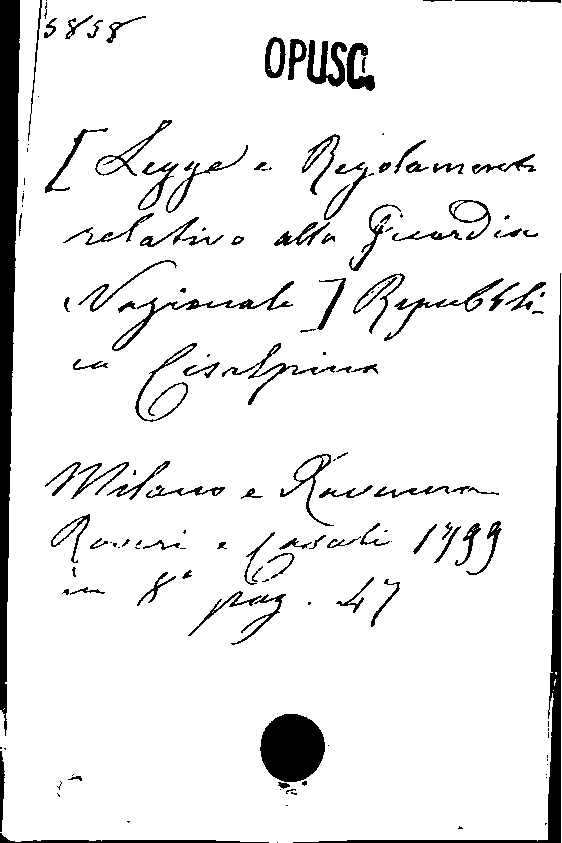 5858
OPUSC.
[Legge e Regolamento
relativo alla Guardia
Nazionale] Repubbli-
ca Cisalpina
Milano e Ravenna
Roveri e Casali 1799
in 8° pag. 47